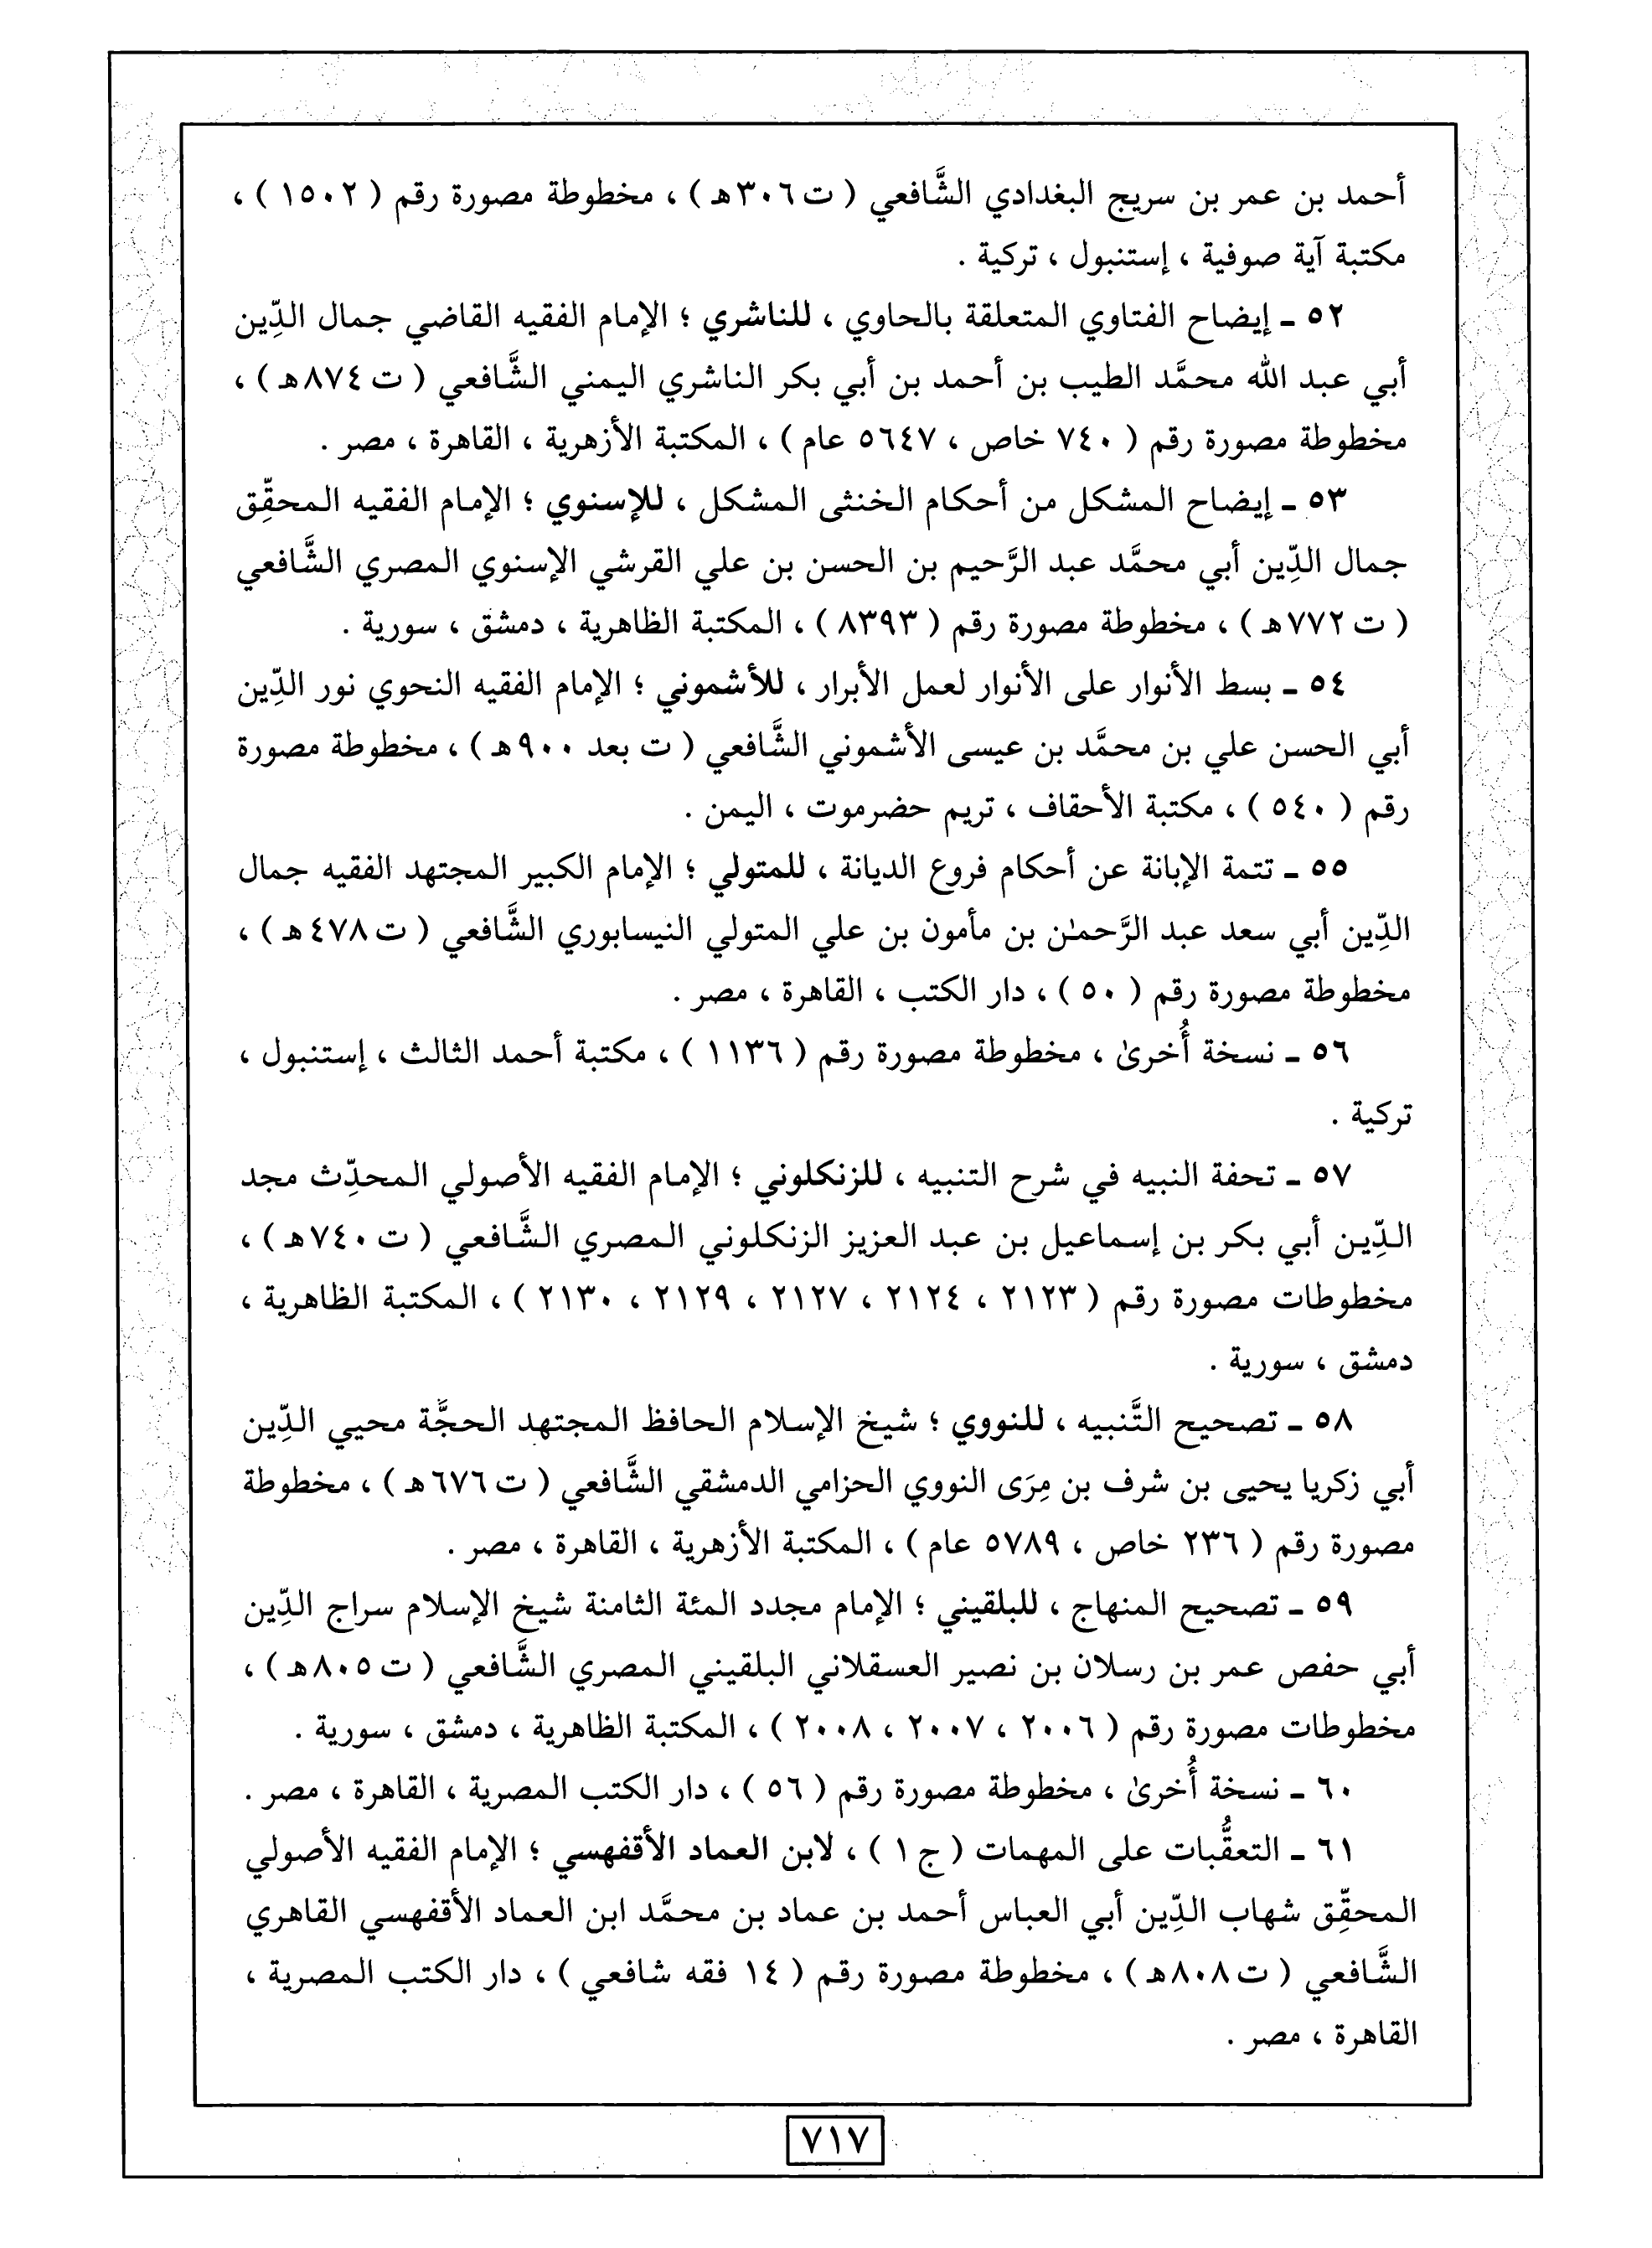 أحمد بن عمر بن سريج البغدادي الشَّافعي ( ت٣٠٦هـ ) ، مخطوطة مصورة رقم ( ١٥٠٢ ) ،
مكتبة آية صوفية ، إستنبول ، تركية .
٥٢ ـ إيضاح الفتاوي المتعلقة بالحاوي ، للناشري ؛ الإمام الفقيه القاضي جمال الدِّين
أبي عبد الله محمَّد الطيب بن أحمد بن أبي بكر الناشري اليمني الشَّافعي ( ت٨٧٤هـ ) ،
مخطوطة مصورة رقم ( ٧٤٠ خاص ، ٥٦٤٧ عام ) ، المكتبة الأزهرية ، القاهرة ، مصر .
٥٣ ـ إيضاح المشكل من أحكام الخنثى المشكل ، للإسنوي ؛ الإمام الفقيه المحقِّق
جمال الدِّين أبي محمَّد عبد الرَّحيم بن الحسن بن علي القرشي الإسنوي المصري الشَّافعي
( ت٧٧٢هـ ) ، مخطوطة مصورة رقم ( ٨٣٩٣ ) ، المكتبة الظاهرية ، دمشق ، سورية .
٥٤ ـ بسط الأنوار على الأنوار لعمل الأبرار ، للأشموني ؛ الإمام الفقيه النحوي نور الدِّين
أبي الحسن علي بن محمَّد بن عيسى الأشموني الشَّافعي ( ت بعد ٩٠٠هـ ) ، مخطوطة مصورة
رقم ( ٥٤٠ ) ، مكتبة الأحقاف ، تريم حضرموت ، اليمن .
٥٥ ـ تتمة الإبانة عن أحكام فروع الديانة ، للمتولي ؛ الإمام الكبير المجتهد الفقيه جمال
الدِّين أبي سعد عبد الرَّحمـٰن بن مأمون بن علي المتولي النيسابوري الشَّافعي ( ت٤٧٨هـ ) ،
مخطوطة مصورة رقم ( ٥٠ ) ، دار الكتب ، القاهرة ، مصر .
٥٦ ـ نسخة أُخرىٰ ، مخطوطة مصورة رقم ( ١١٣٦ ) ، مكتبة أحمد الثالث ، إستنبول ،
تركية .
٥٧ ـ تحفة النبيه في شرح التنبيه ، للزنكلوني ؛ الإمام الفقيه الأصولي المحدِّث مجد
الدِّين أبي بكر بن إسماعيل بن عبد العزيز الزنكلوني المصري الشَّافعي ( ت٧٤٠هـ ) ،
مخطوطات مصورة رقم ( ٢١٢٣ ، ٢١٢٤ ، ٢١٢٧ ، ٢١٢٩ ، ٢١٣٠ ) ، المكتبة الظاهرية ،
دمشق ، سورية .
٥٨ ـ تصحيح التَّنبيه ، للنووي ؛ شيخ الإسلام الحافظ المجتهد الحجَّة محيي الدِّين
أبي زكريا يحيى بن شرف بن مِرَى النووي الحزامي الدمشقي الشَّافعي ( ت٦٧٦هـ ) ، مخطوطة
مصورة رقم ( ٢٣٦ خاص ، ٥٧٨٩ عام ) ، المكتبة الأزهرية ، القاهرة ، مصر .
٥٩ ـ تصحيح المنهاج ، للبلقيني ؛ الإمام مجدد المئة الثامنة شيخ الإسلام سراج الدِّين
أبي حفص عمر بن رسلان بن نصير العسقلاني البلقيني المصري الشَّافعي ( ت٨٠٥هـ ) ،
مخطوطات مصورة رقم ( ٢٠٠٦ ، ٢٠٠٧ ، ٢٠٠٨ ) ، المكتبة الظاهرية ، دمشق ، سورية .
٦٠ ـ نسخة أُخرىٰ ، مخطوطة مصورة رقم ( ٥٦ ) ، دار الكتب المصرية ، القاهرة ، مصر .
٦١ ـ التعقُّبات على المهمات ( ج١ ) ، لابن العماد الأقفهسي ؛ الإمام الفقيه الأصولي
المحقِّق شهاب الدِّين أبي العباس أحمد بن عماد بن محمَّد ابن العماد الأقفهسي القاهري
الشَّافعي ( ت٨٠٨هـ ) ، مخطوطة مصورة رقم ( ١٤ فقه شافعي ) ، دار الكتب المصرية ،
القاهرة ، مصر .
٧١٧